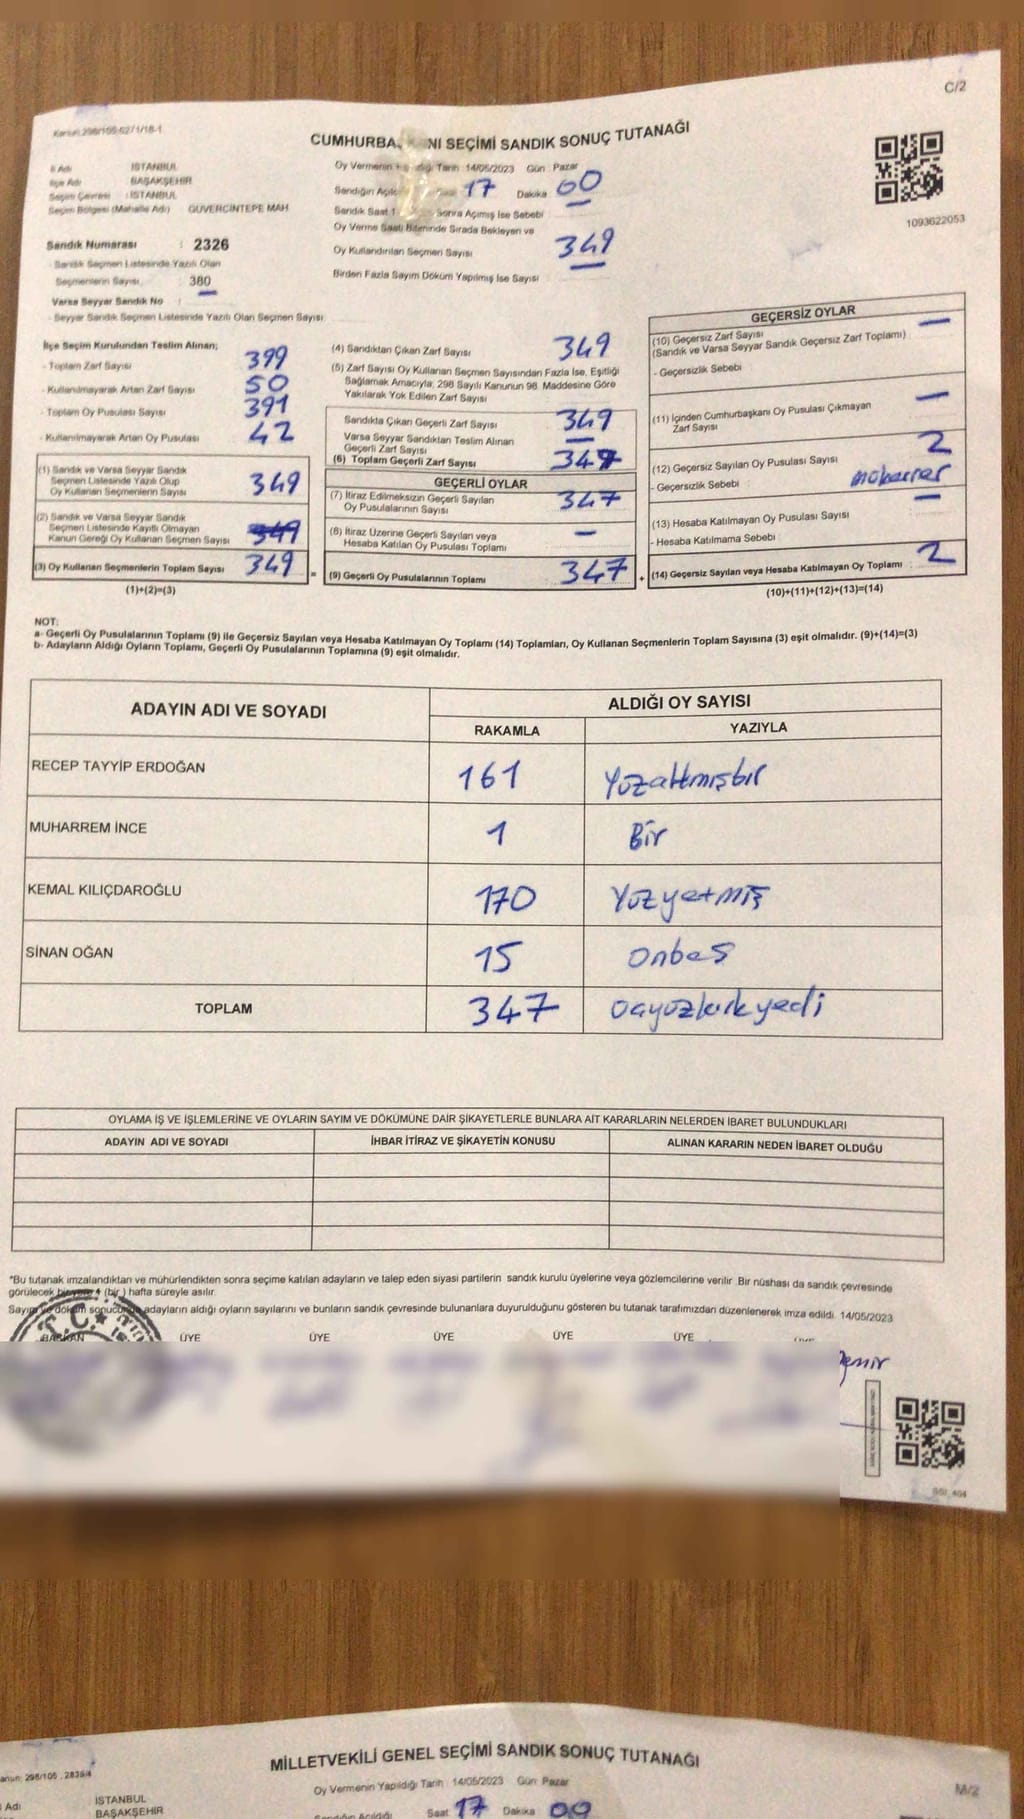 C/2
Kanun:298/105-6271/18-1
CUMHURBA NI SEÇİMİ SANDIK SONUÇ TUTANAĞI
İl Adı : İSTANBUL
İlçe Adı : BAŞAKŞEHİR
Seçim Çevresi : İSTANBUL
Seçim Bölgesi (Mahalle Adı) : GÜVERCİNTEPE MAH.
Sandık Numarası : 2326
- Sandık Seçmen Listesinde Yazılı Olan
Seçmenlerin Sayısı : 380
Varsa Seyyar Sandık No :
- Seyyar Sandık Seçmen Listesinde Yazılı Olan Seçmen Sayısı:
Oy Vermenin Tarih 14/05/2023 Gün Pazar
Sandığın Açılı 17 Dakika 00
Sandık Saat 1 Sonra Açımış İse Sebebi
Oy Verme Saati Bitiminde Sırada Bekleyen ve
Oy Kullandırılan Seçmen Sayısı 349
Birden Fazla Sayım Döküm Yapılmış İse Sayısı
1093622053
İlçe Seçim Kurulundan Teslim Alınan;
- Toplam Zarf Sayısı 399
- Kullanılmayarak Artan Zarf Sayısı 50
- Toplam Oy Pusulası Sayısı 391
- Kullanılmayarak Artan Oy Pusulası 42
(1) Sandık ve Varsa Seyyar Sandık
Seçmen Listesinde Yazılı Olup
Oy Kullanan Seçmenlerin Sayısı 349
(2) Sandık ve Varsa Seyyar Sandık
Seçmen Listesinde Kayıtlı Olmayan
Kanun Gereği Oy Kullanan Seçmen Sayısı 349
(3) Oy Kullanan Seçmenlerin Toplam Sayısı 349
(1)+(2)=(3)
(4) Sandıktan Çıkan Zarf Sayısı 349
(5) Zarf Sayısı Oy Kullanan Seçmen Sayısından Fazla İse, Eşitliği
Sağlamak Amacıyla, 298 Sayılı Kanunun 98. Maddesine Göre
Yakılarak Yok Edilen Zarf Sayısı
Sandıkta Çıkan Geçerli Zarf Sayısı 349
Varsa Seyyar Sandıktan Teslim Alınan
Geçerli Zarf Sayısı —
(6) Toplam Geçerli Zarf Sayısı 347
GEÇERLİ OYLAR
(7) İtiraz Edilmeksizin Geçerli Sayılan
Oy Pusulalarının Sayısı 347
(8) İtiraz Üzerine Geçerli Sayılan veya
Hesaba Katılan Oy Pusulası Toplamı —
= (9) Geçerli Oy Pusulalarının Toplamı 347 +
GEÇERSİZ OYLAR
(10) Geçersiz Zarf Sayısı —
(Sandık ve Varsa Seyyar Sandık Geçersiz Zarf Toplamı)
- Geçersizlik Sebebi
(11) İçinden Cumhurbaşkanı Oy Pusulası Çıkmayan
Zarf Sayısı —
(12) Geçersiz Sayılan Oy Pusulası Sayısı 2
- Geçersizlik Sebebi
(13) Hesaba Katılmayan Oy Pusulası Sayısı —
- Hesaba Katılmama Sebebi
(14) Geçersiz Sayılan veya Hesaba Katılmayan Oy Toplamı 2
(10)+(11)+(12)+(13)=(14)
NOT:
a- Geçerli Oy Pusulalarının Toplamı (9) ile Geçersiz Sayılan veya Hesaba Katılmayan Oy Toplamı (14) Toplamları, Oy Kullanan Seçmenlerin Toplam Sayısına (3) eşit olmalıdır. (9)+(14)=(3)
b- Adayların Aldığı Oyların Toplamı, Geçerli Oy Pusulalarının Toplamına (9) eşit olmalıdır.
ADAYIN ADI VE SOYADI ALDIĞI OY SAYISI
RAKAMLA YAZIYLA
RECEP TAYYİP ERDOĞAN 161 Yüzaltmışbir
MUHARREM İNCE 1 Bir
KEMAL KILIÇDAROĞLU 170 Yüzyetmiş
SİNAN OĞAN 15 Onbeş
TOPLAM 347 üçyüzkırkyedi
OYLAMA İŞ VE İŞLEMLERİNE VE OYLARIN SAYIM VE DÖKÜMÜNE DAİR ŞİKAYETLERLE BUNLARA AİT KARARLARIN NELERDEN İBARET BULUNDUKLARI
ADAYIN ADI VE SOYADI İHBAR İTİRAZ VE ŞİKAYETİN KONUSU ALINAN KARARIN NEDEN İBARET OLDUĞU
*Bu tutanak imzalandıktan ve mühürlendikten sonra seçime katılan adayların ve talep eden siyasi partilerin sandık kurulu üyelerine veya gözlemcilerine verilir. Bir nüshası da sandık çevresinde
görülecek bir yere (bir) hafta süreyle asılır.
Sayım ve döküm sonucunda adayların aldığı oyların sayılarını ve bunların sandık çevresinde bulunanlara duyurulduğunu gösteren bu tutanak tarafımızdan düzenlenerek imza edildi. 14/05/2023
T.C.
BAŞKAN ÜYE ÜYE ÜYE ÜYE ÜYE
MİLLETVEKİLİ GENEL SEÇİMİ SANDIK SONUÇ TUTANAĞI
M/2
Oy Vermenin Yapıldığı Tarih : 14/05/2023 Gün: Pazar
Adı İSTANBUL
BAŞAKŞEHİR
Sandığın Açıldığı Saat 17 Dakika 00